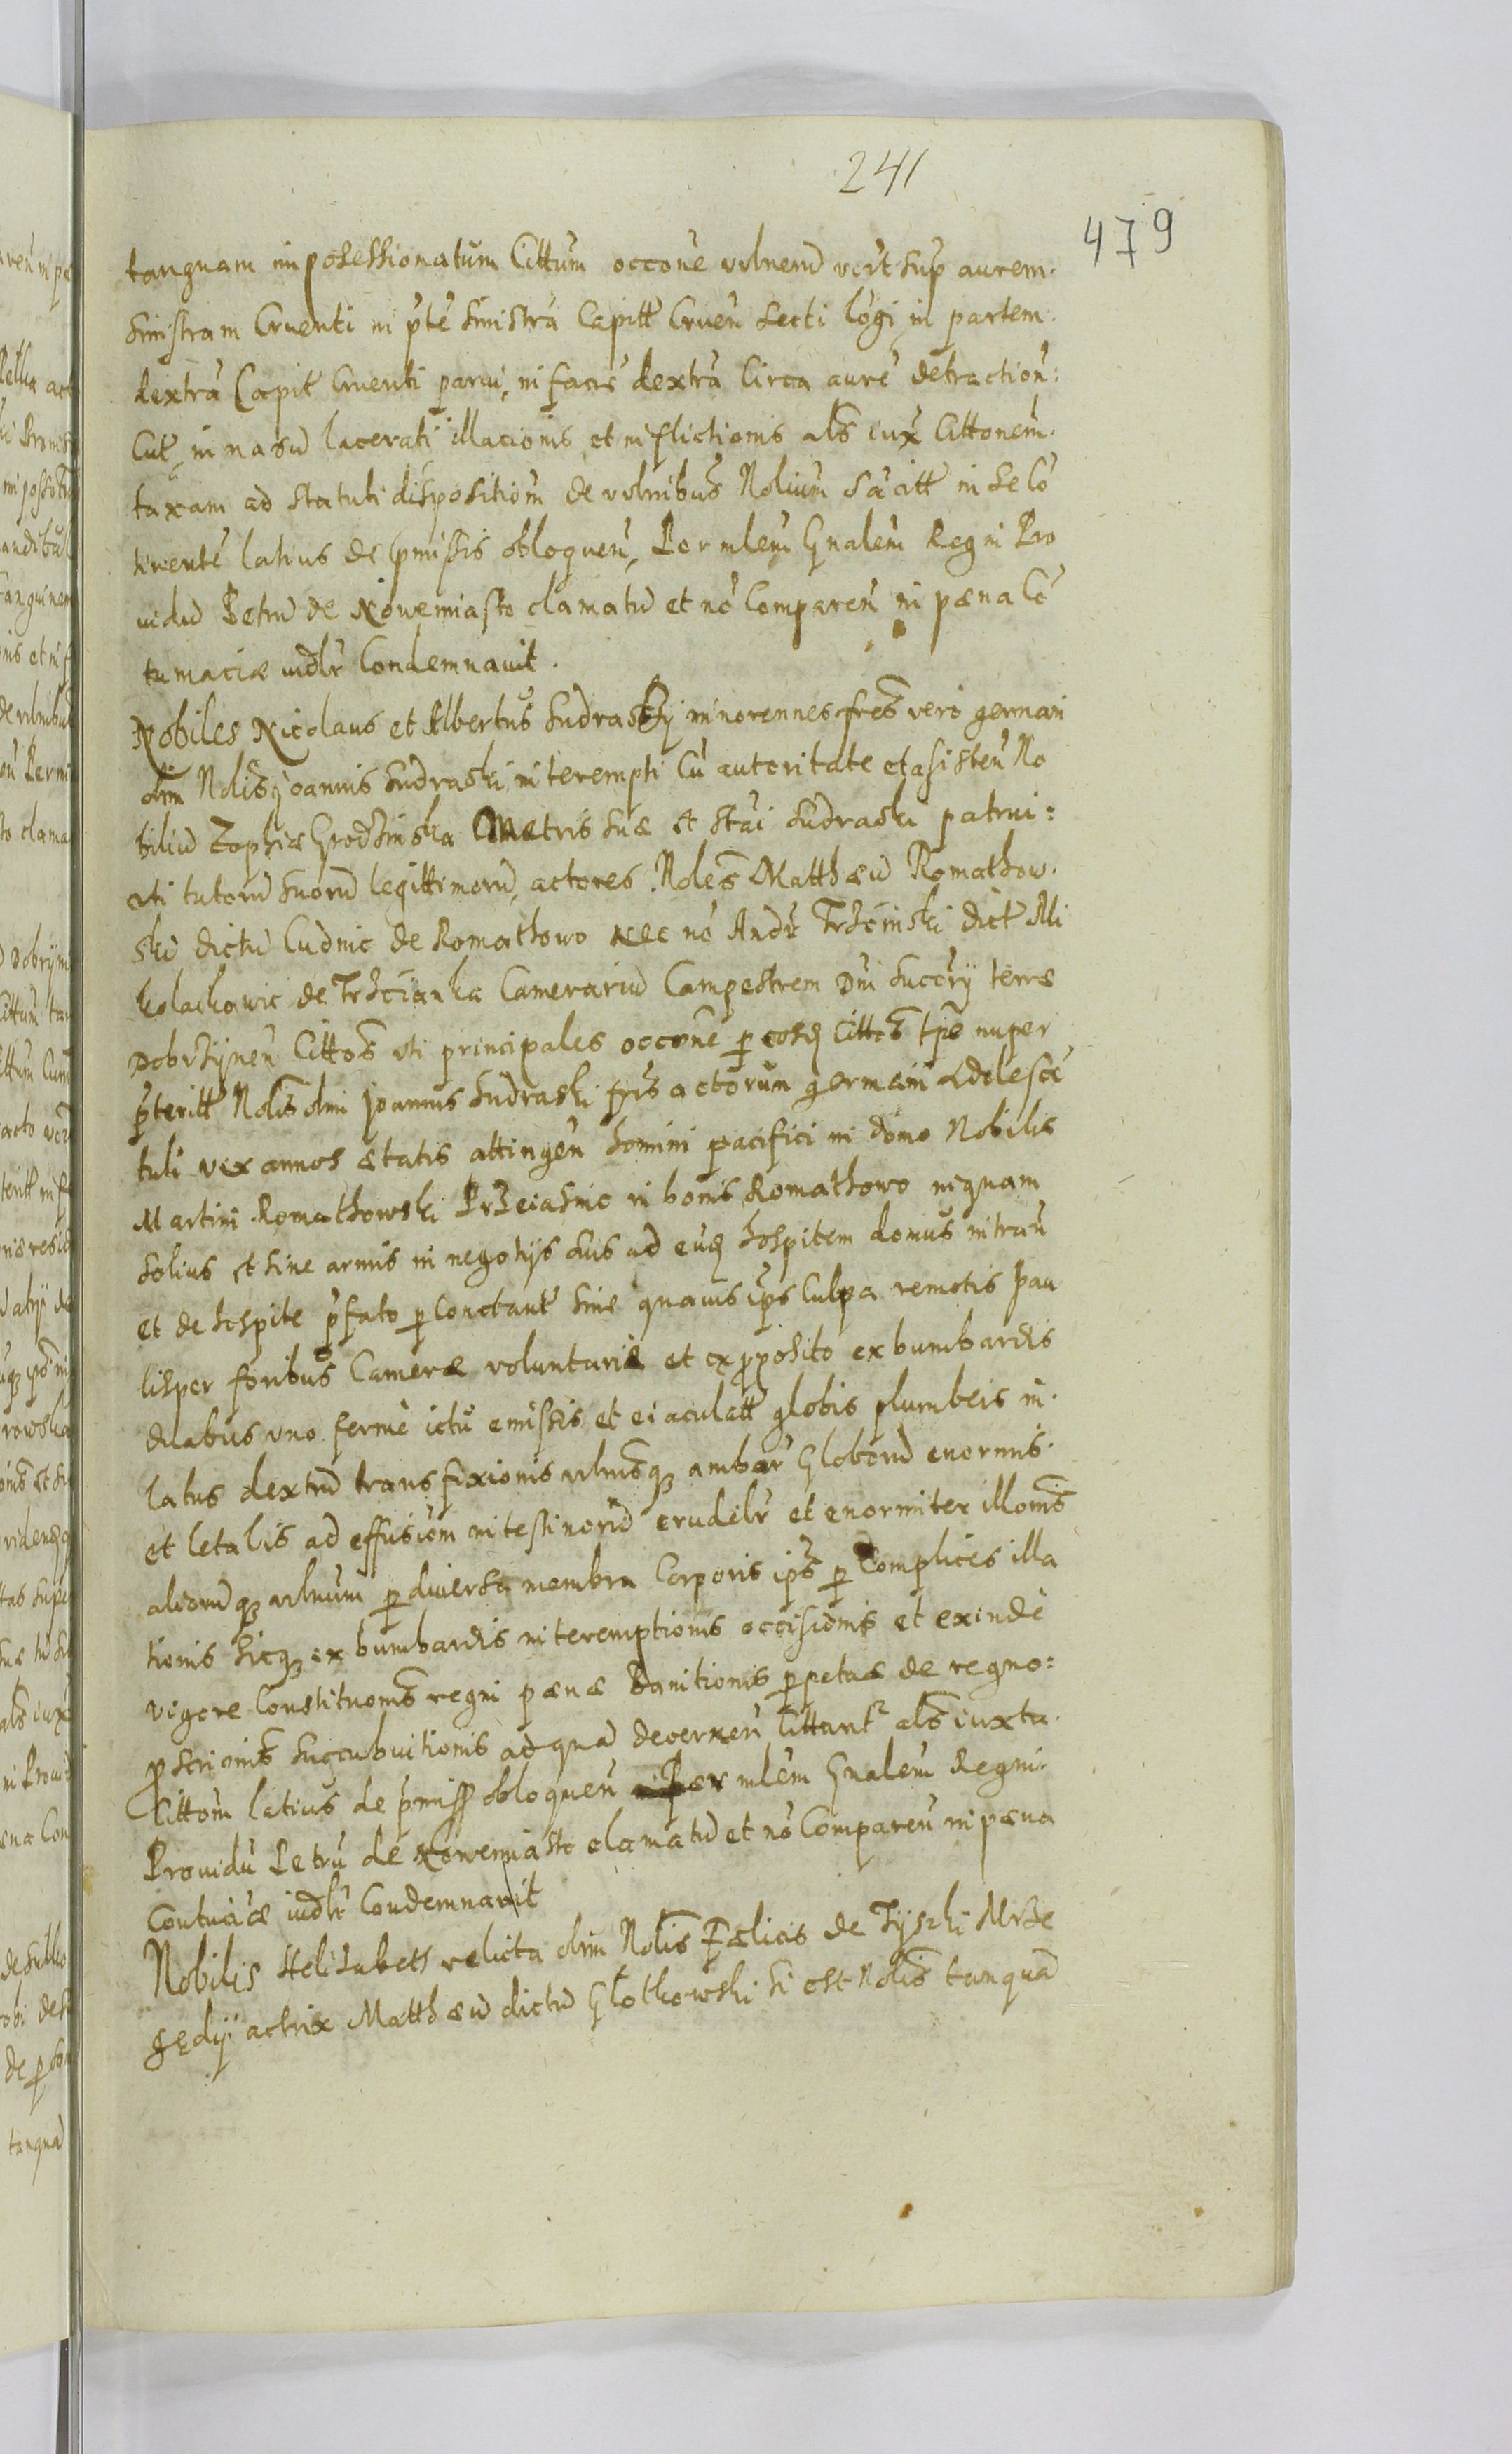 241
479
tanquam impossessionatum Cittum occone vulnerū vert sup aurem
sinistram Cruenti in pte sinistra Capitt Cruen secti logi in partem
dextrā Capit Cruenti parui, in facie dextrā Circa aurē detraction:
Cut, in nasu lacerati illacionis, et inflictionis als iux Cittonem
taxam ad statuti dispositiom de vulnibus Nolium sācitt in se Co
tinentē latius de pmissis obloquen, Per mlem Gnalem Regni Pro
uidū Petrū de Nouemiasto clamatū et nō Comparen in pæna Cō
tumaciæ iudlr Condemnauit.
Nobiles Nicolaus et Albertus Sudraskij minorennes fres vero germani
olim Nolis Joannis Sudraski, interempti Cū autoritate et asisten No
biliū Zophiæ Grodzinska Matris suæ et Stai Sudraski patrui:
uti tutorū suorū legittimorū, actores. Noles Matthæū Romathow
skū dictū Cudnic de Romathowo nec nō Andr Trzcinski dict Mi
kolachowic de Trzcianka Camerariū Campestrem Dni Succrij terræ
Dobrzynen Cittos uti principales occone p eosd Cittos tpe nuper
pteritt Nolis olim Joannis Sudraski fris actorum germani Adolescē
tuli vix annos ætatis attingen homini pacifici in domo Nobilis
Martini Romathowski Przeciasnic in bonis Romathowo nequam
solius et sine armis in negotijs suis ad eūd hospitem domus intran
et de hospite pfato p Conctant sine quauis ips Culpa remotis pau
lisper foribus Cameræ voluntariæ et ex proposito ex bumbardis
duabus vno ferme ictu emissis et eiaculatt globis plumbeis in
latus dextrū transfixionis vulnisq ambar Globorū enormis
et letalis ad effusiom intestinorū crudelr et enormiter illonis
aliorūq vulnum p diuersa membra Corporis ips p Complices illa
tionis sicq ex bumbardis interemptionis occisionis et exinde
vigore Constitvonis regni pænæ Banitionis ppetuæ de regno:
proscrionis succubuitionis ad quā decernen Cittant als iuxta
Cittom latius de pmiss obloquen Per mlem Gnalem Regni
Prouidū Petrū de Nowemiasto clamatū et nō Comparen in pæna
Contuciæ iudlr Condemnavit
Nobilis Helisabeth relicta olim Nolis Fælicis de Tyszki Mrze
gedij actrix Matthæū dictū Glotkowski si est Nolis tanquā